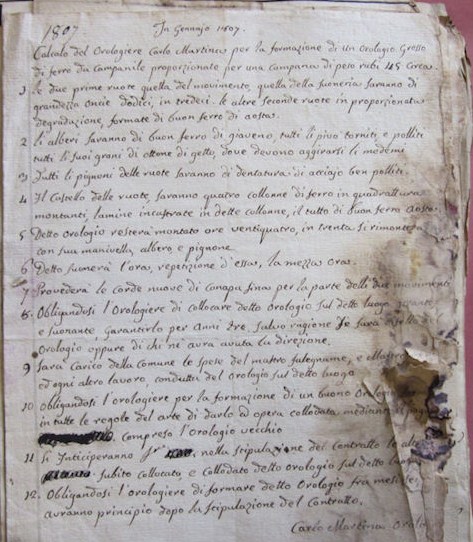 1807 In Gennajo 1807.
Calcolo del Orologiere Carlo Martina per la formazione di un Orologio Grosso
di ferro da Campanile proporzionato per una Campana di peso rubi 45 Circa.
1 Le due prime ruote quella del movimento, quella della suoneria saranno di
grandezza Oncie dodici, in tredesi. le altre seconde ruote in proporzionata
degradazione, formate di buon ferro di aosta.
2 li alberi saranno di buon ferro di giaveno, tutti li pivo torniti, e polliti
tutti li suoi grani di ottone di getto, dove devono aggirarsi li medemi
3 Tutti li pignoni delle ruote saranno di dentatura di acciajo ben polliti.
4 Il Castello delle ruote, saranno quatro collonne di ferro in quadrattura
montanti, lamine incastrate in dette collonne, il tutto di buon ferro aosta
5 Detto orologio resterà montato ore ventiquatro, in trenta si rimontera
con sua manivella, albero e pignone.
6 Detto suonerà l'ora, repetizion d'essa, la mezza ora.
7 Provederà le corde nuove di canapa sino per la parte delle due movimenti
8. Obligandosi l'Orologiere di collocare detto Orologio sul detto luogo
e suonante, Garantirlo per Anni tre, salvo ragione
Orologio oppure di chi ne avrà avuta la direzione.
9 Sarà Carico della Comune le spese del mastro falegname, e
ed ogni altro lavoro, condutta del orologio sul detto luogo
10 Obligandosi l'orologiere per la formazione di un buono Orologio
in tutte le regole del arte di darlo ad opera collodata mediante il
Compreso l'Orologio vecchio
11 Si Anticiperanno nella scipulazione del Contratto le altre
subito collocato, e Collodato detto Orologio sul detto luogo
12. Obligandosi l'orologiere di formare detto Orologio fra mesi
avranno principio dopo la scipulazione del Contratto.
Carlo Martina